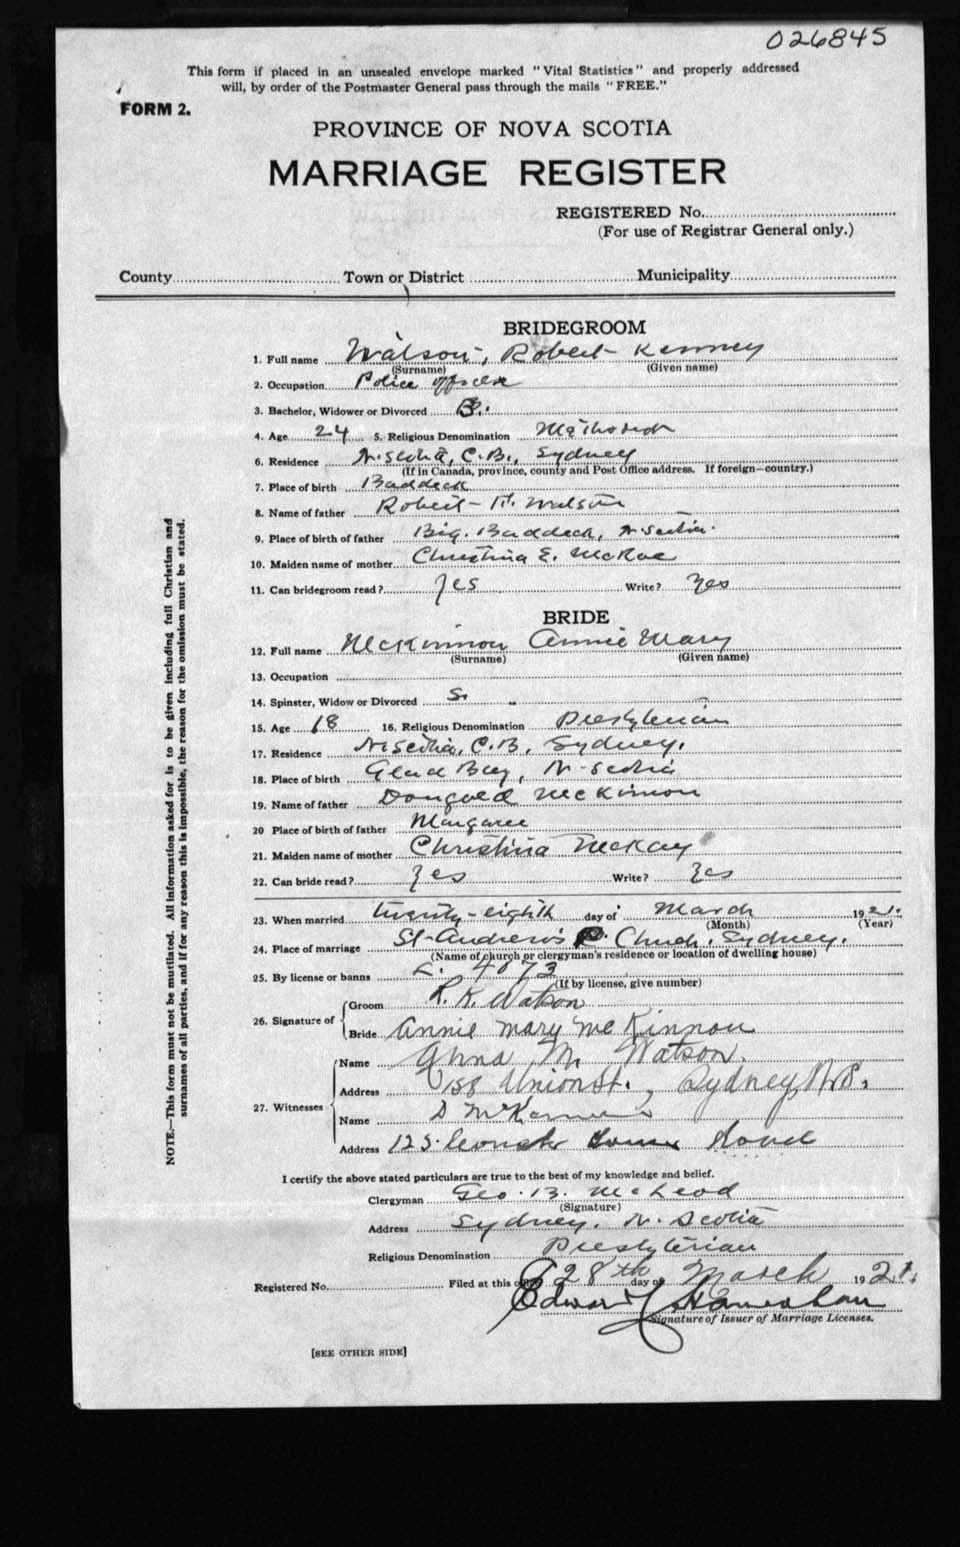 026845
This form if placed in an unsealed envelope marked "Vital Statistics" and properly addressed
will, by order of the Postmaster General pass through the mails "FREE."
FORM 2.
PROVINCE OF NOVA SCOTIA
MARRIAGE REGISTER
REGISTERED No.
(For use of Registrar General only.)
County Town or District Municipality
BRIDEGROOM
1. Full name Watson, Robert Kenney
(Surname) (Given name)
2. Occupation Police officer
3. Bachelor, Widower or Divorced B.
4. Age 24 5. Religious Denomination Methodist
6. Residence N. Scotia, C.B., Sydney
(If in Canada, province, county and Post Office address. If foreign—country.)
7. Place of birth Baddeck
8. Name of father Robert H. Watson
9. Place of birth of father Big. Baddeck, N. Scotia.
10. Maiden name of mother Christina E. McRae
11. Can bridegroom read? Yes Write? Yes
BRIDE
12. Full name McKinnon Annie Mary
(Surname) (Given name)
13. Occupation
14. Spinster, Widow or Divorced S.
15. Age 18 16. Religious Denomination Presbyterian
17. Residence N. Scotia, C.B, Sydney.
18. Place of birth Glace Bay, N-Scotia
19. Name of father Dougald McKinnon
20 Place of birth of father Margaree
21. Maiden name of mother Christina McKay
22. Can bride read? Yes Write? Yes
23. When married twenty-eighth day of March 1921.
(Month) (Year)
24. Place of marriage St-Andrew's P. Church, Sydney.
(Name of church or clergyman's residence or location of dwelling house)
25. By license or banns L. 4873
(If by license, give number)
26. Signature of Groom R. K. Watson
Bride Annie Mary McKinnon
27. Witnesses Name Anna M. Watson.
Address 158 Union St., Sydney, N.S.
Name D McKinnon
Address 125
I certify the above stated particulars are true to the best of my knowledge and belief.
Clergyman Geo. B. McLeod
(Signature)
Address Sydney, N. Scotia
Religious Denomination Presbyterian
Registered No. Filed at this office 28th day of March 1921.
Edward
Signature of Issuer of Marriage Licenses.
[SEE OTHER SIDE]
NOTE.—This form must not be mutilated. All information asked for is to be given including full Christian and
surnames of all parties, and if for any reason this is impossible, the reason for the omission must be stated.